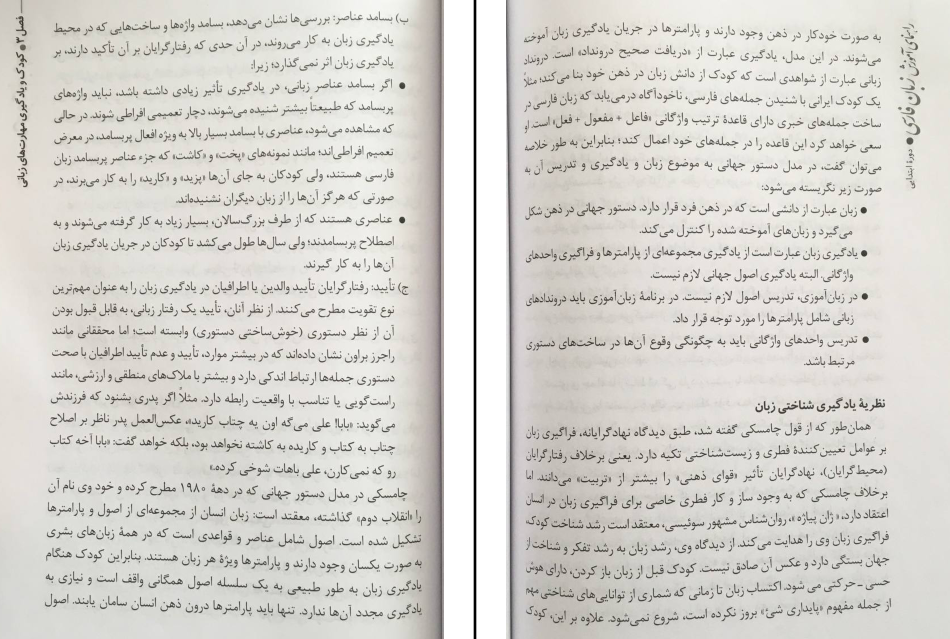 فصل ۳ ● کودک و یادگیری مهارت‌های زبانی
ب) بسامد عناصر: بررسی‌ها نشان می‌دهد، بسامد واژه‌ها و ساخت‌هایی که در محیط
یادگیری زبان به کار می‌روند، در آن حدی که رفتارگرایان بر آن تأکید دارند، بر
یادگیری زبان اثر نمی‌گذارد؛ زیرا:
● اگر بسامد عناصر زبانی، در یادگیری تأثیر زیادی داشته باشد، نباید واژه‌های
پربسامد که طبیعتاً بیشتر شنیده می‌شوند، دچار تعمیمی افراطی شوند. در حالی
که مشاهده می‌شود، عناصری با بسامد بسیار بالا به ویژه افعال پربسامد، در معرض
تعمیم افراطی‌اند؛ مانند نمونه‌های «پخت» و «کاشت» که جزء عناصر پربسامد زبان
فارسی هستند، ولی کودکان به جای آن‌ها «پزید» و «کارید» را به کار می‌برند، در
صورتی که هرگز آن‌ها را از زبان دیگران نشنیده‌اند.
● عناصری هستند که از طرف بزرگ‌سالان، بسیار زیاد به کار گرفته می‌شوند و به
اصطلاح پربسامدند؛ ولی سال‌ها طول می‌کشد تا کودکان در جریان یادگیری زبان
آن‌ها را به کار گیرند.
ج) تأیید: رفتارگرایان تأیید والدین یا اطرافیان در یادگیری زبان را به عنوان مهم‌ترین
نوع تقویت مطرح می‌کنند. از نظر آنان، تأیید یک رفتار زبانی، به قابل قبول بودن
آن از نظر دستوری (خوش‌ساختی دستوری) وابسته است؛ اما محققانی مانند
راجرز براون نشان داده‌اند که در بیشتر موارد، تأیید و عدم تأیید اطرافیان با صحت
دستوری جمله‌ها ارتباط اندکی دارد و بیشتر با ملاک‌های منطقی و ارزشی، مانند
راست‌گویی یا تناسب با واقعیت رابطه دارد. مثلاً اگر پدری بشنود که فرزندش
می‌گوید: «بابا! علی می‌گه اون یه چتاب کارید»، عکس‌العمل پدر ناظر بر اصلاح
چتاب به کتاب و کاریده به کاشته نخواهد بود، بلکه خواهد گفت: «بابا آخه کتاب
رو که نمی‌کارن، علی باهات شوخی کرده.»
چامسکی در مدل دستور جهانی که در دههٔ ۱۹۸۰ مطرح کرده و خود وی نام آن
را «انقلاب دوم» گذاشته، معقتد است: زبان انسان از مجموعه‌ای از اصول و پارامترها
تشکیل شده است. اصول شامل عناصر و قواعدی است که در همهٔ زبان‌های بشری
به صورت یکسان وجود دارند و پارامترها ویژهٔ هر زبان هستند. بنابراین کودک هنگام
یادگیری زبان به طور طبیعی به یک سلسله اصول همگانی واقف است و نیازی به
یادگیری مجدد آن‌ها ندارد. تنها باید پارامترها درون ذهن انسان سامان یابند. اصول
راهنمای آموزش زبان فارسی ● دورهٔ ابتدایی
به صورت خودکار در ذهن وجود دارند و پارامترها در جریان یادگیری زبان آموخته
می‌شوند. در این مدل، یادگیری عبارت از «دریافت صحیح درونداد» است. درونداد
زبانی عبارت از شواهدی است که کودک از دانش زبان در ذهن خود بنا می‌کند؛ مثلاً
یک کودک ایرانی با شنیدن جمله‌های فارسی، ناخودآگاه درمی‌یابد که زبان فارسی در
ساخت جمله‌های خبری دارای قاعدهٔ ترتیب واژگانی «فاعل + مفعول + فعل» است. او
سعی خواهد کرد این قاعده را در جمله‌های خود اعمال کند؛ بنابراین به طور خلاصه
می‌توان گفت، در مدل دستور جهانی به موضوع زبان و یادگیری و تدریس آن به
صورت زیر نگریسته می‌شود:
● زبان عبارت از دانشی است که در ذهن فرد قرار دارد. دستور جهانی در ذهن شکل
می‌گیرد و زبان‌های آموخته شده را کنترل می‌کند.
● یادگیری زبان عبارت است از یادگیری مجموعه‌ای از پارامترها و فراگیری واحدهای
واژگانی، البته یادگیری اصول جهانی لازم نیست.
● در زبان‌آموزی، تدریس اصول لازم نیست. در برنامهٔ زبان‌آموزی باید دروندادهای
زبانی شامل پارامترها را مورد توجه قرار داد.
● تدریس واحدهای واژگانی باید به چگونگی وقوع آن‌ها در ساخت‌های دستوری
مرتبط باشد.
نظریهٔ یادگیری شناختی زبان
همان‌طور که از قول چامسکی گفته شد، طبق دیدگاه نهادگرایانه، فراگیری زبان
بر عوامل تعیین‌کنندهٔ فطری و زیست‌شناختی تکیه دارد. یعنی برخلاف رفتارگرایان
(محیط‌گرایان)، نهادگرایان تأثیر «قوای ذهنی» را بیشتر از «تربیت» می‌دانند. اما
برخلاف چامسکی که به وجود ساز و کار فطری خاصی برای فراگیری زبان در انسان
اعتقاد دارد، «ژان پیاژه»، روان‌شناس مشهور سوئیسی، معتقد است رشد شناخت کودک،
فراگیری زبان وی را هدایت می‌کند. از دیدگاه وی، رشد زبان به رشد تفکر و شناخت از
جهان بستگی دارد و عکس آن صادق نیست. کودک قبل از زبان باز کردن، دارای هوش
حسی ـ حرکتی می شود. اکتساب زبان تا زمانی که شماری از توانایی‌های شناختی مهم
از جمله مفهوم «پایداری شئ» بروز نکرده است، شروع نمی‌شود. علاوه بر این، کودک